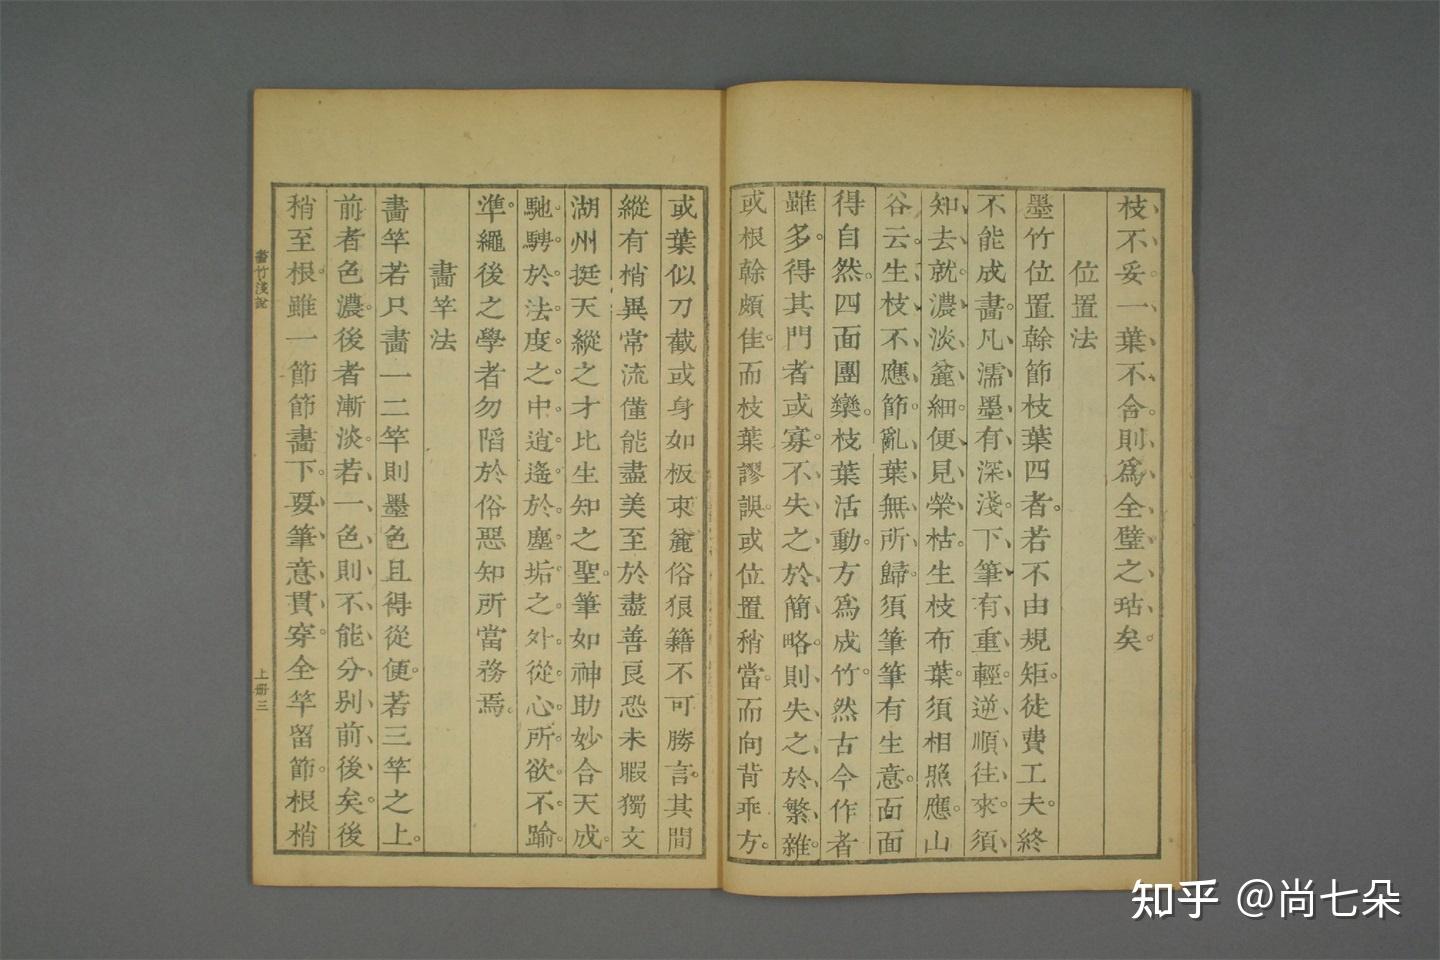 枝、不、妥、一、葉、不、合、則、爲、全、璧、之、玷、矣。
位置法
墨竹位置幹節枝葉四者。若不由規矩。徒費工夫。終
不能成畵。凡濡墨有深淺。下筆有重輕。逆順往來。須
知去就。濃淡麄細。便見榮枯。生枝布葉。須相照應。山
谷云。生枝不應節。亂葉無所歸。須筆筆有生意。面面
得自然。四面團欒。枝葉活動。方爲成竹。然古今作者
雖多。得其門者或寡。不失之於簡略。則失之於繁雜。
或根幹頗佳。而枝葉謬誤。或位置稍當。而向背乖方。
或葉似刀截或身如板朿麄俗狼籍不可勝言。其間
縱有稍異常流僅能盡美至於盡善良恐未暇獨文
湖州挺天縱之才比生知之聖。筆如神助妙合天成。
馳騁於法度之中。逍遙於塵垢之外。從心所欲。不踰
準。繩後之學者勿陷於俗惡知所當務焉。
畵竿法
畵竿若只畵一二竿則墨色且得從便。若三竿之上。
前者色濃。後者漸淡。若一色則不能分别前後矣。後
稍至根。雖一節節畵下。要筆意貫穿。全竿留節。根梢
畵竹淺說
上册三
知乎 @尚七朵